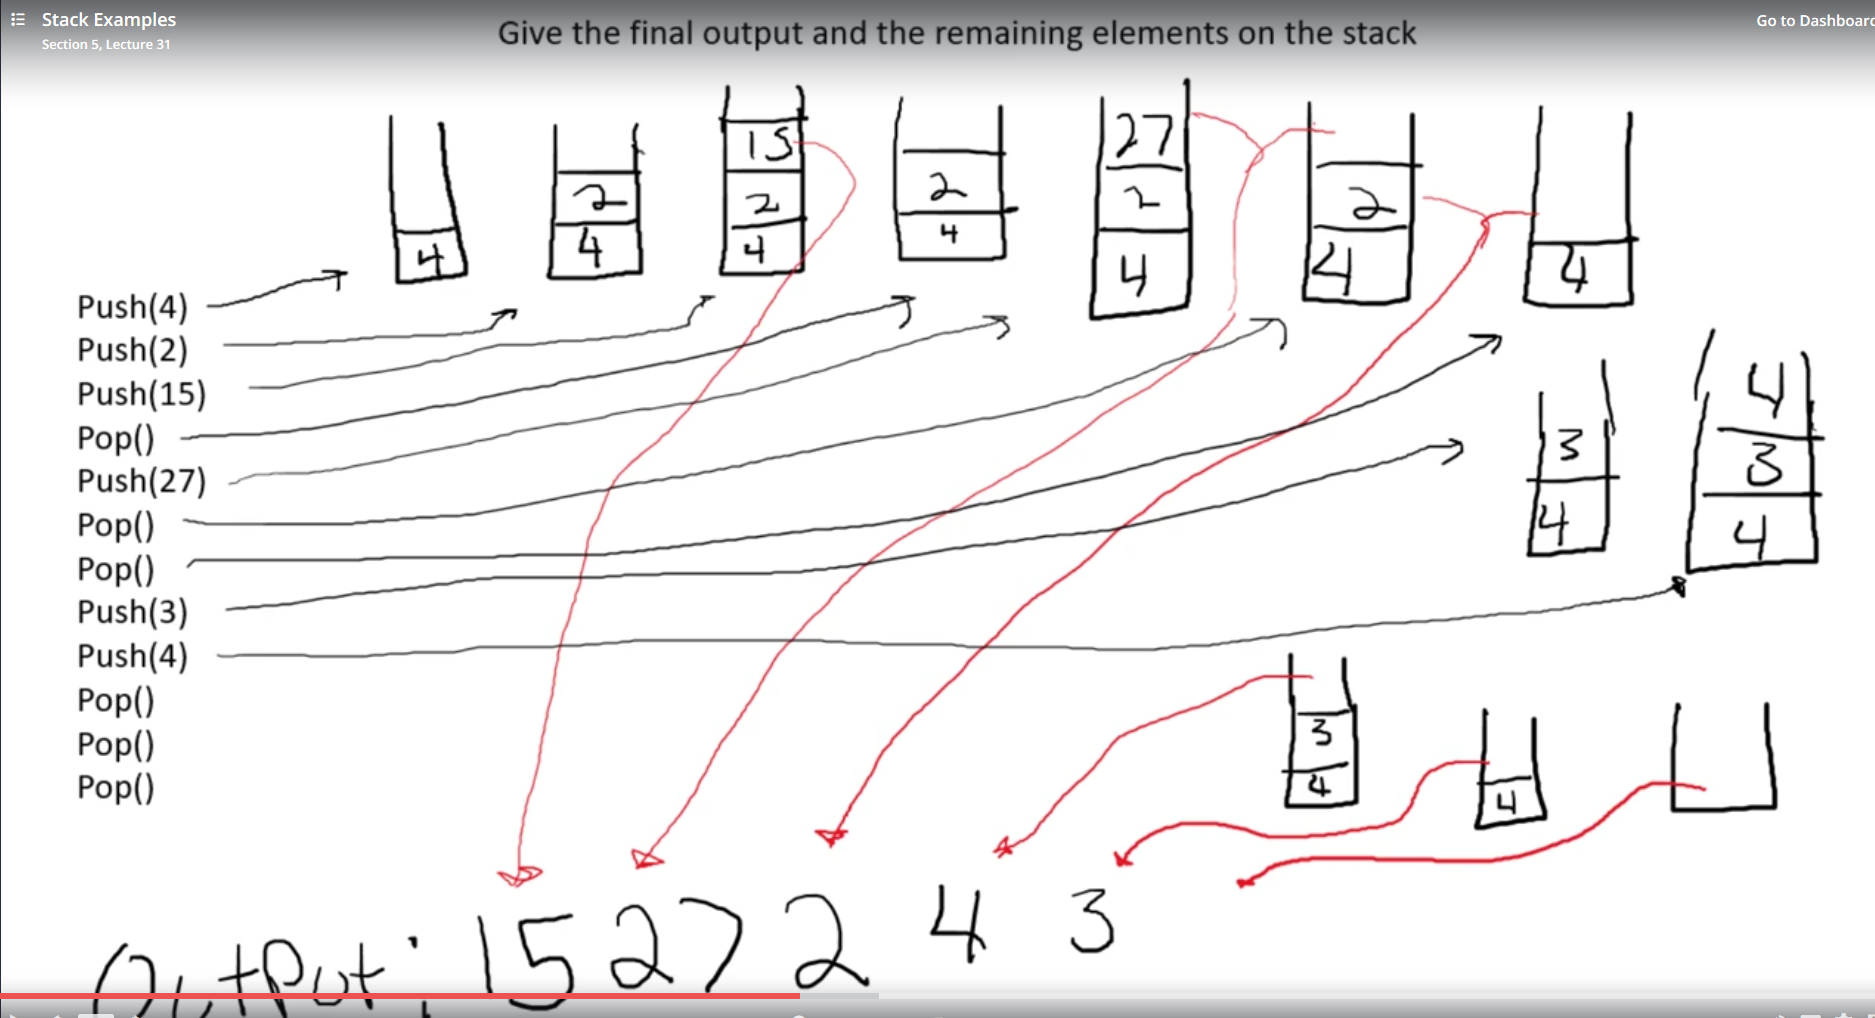 Stack Examples
Go to Dashboard
Section 5, Lecture 31
Give the final output and the remaining elements on the stack
4
2
4
15
2
4
2
4
27
2
4
2
4
4
Push(4)
Push(2)
Push(15)
Pop()
Push(27)
Pop()
Pop()
Push(3)
Push(4)
Pop()
Pop()
Pop()
3
4
4
3
4
3
4
4
Output: 15 27 2 4 3